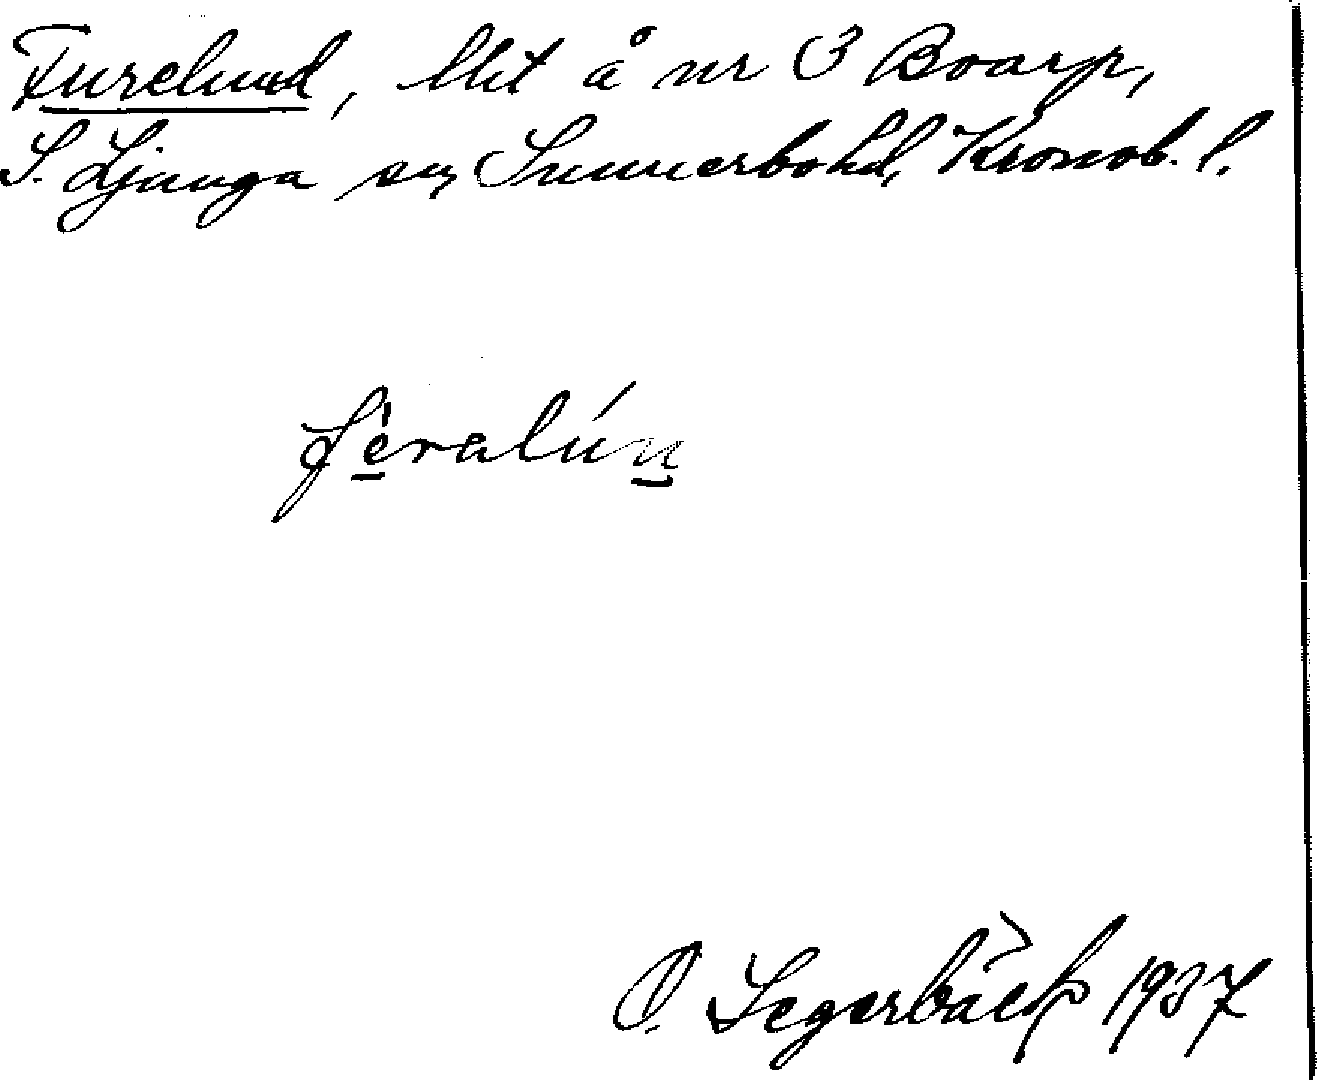 Furelund, lht å nr 3 Boarp,
S. Ljunga sn, Sunnerbo hd, Kronob. l.
fèralún
O. Segerbäck 1937